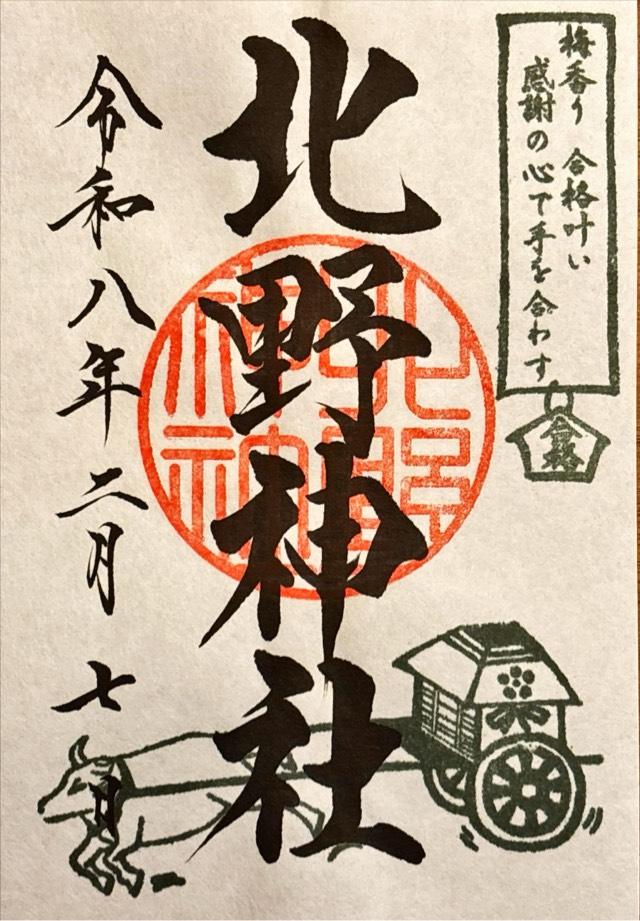 梅香り 合格叶い
感謝の心で手を合わす
合格
北野神社
北野神社
令和八年二月七日